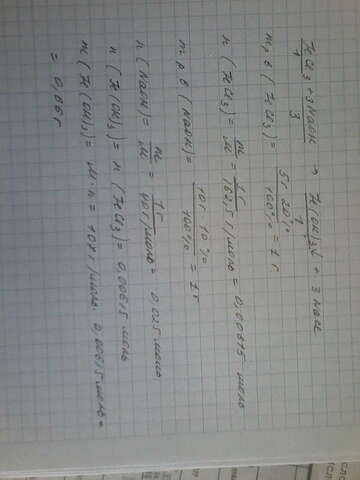 FeCl3 + 3NaOH → Fe(OH)3↓ + 3NaCl
1 3 1
m р.в (FeCl3) = 5г · 20% / 100% = 1 г
n (FeCl3) = m/M = 1г / 162,5 г/моль = 0,00615 моль
m р.в (NaOH) = 10г · 10% / 100% = 1г
n (NaOH) = m/M = 1г / 40г/моль = 0,025 моль
n (Fe(OH)3) = n (FeCl3) = 0,00615 моль
m (Fe(OH)3) = M·n = 107г/моль · 0,00615 моль =
= 0,66 г